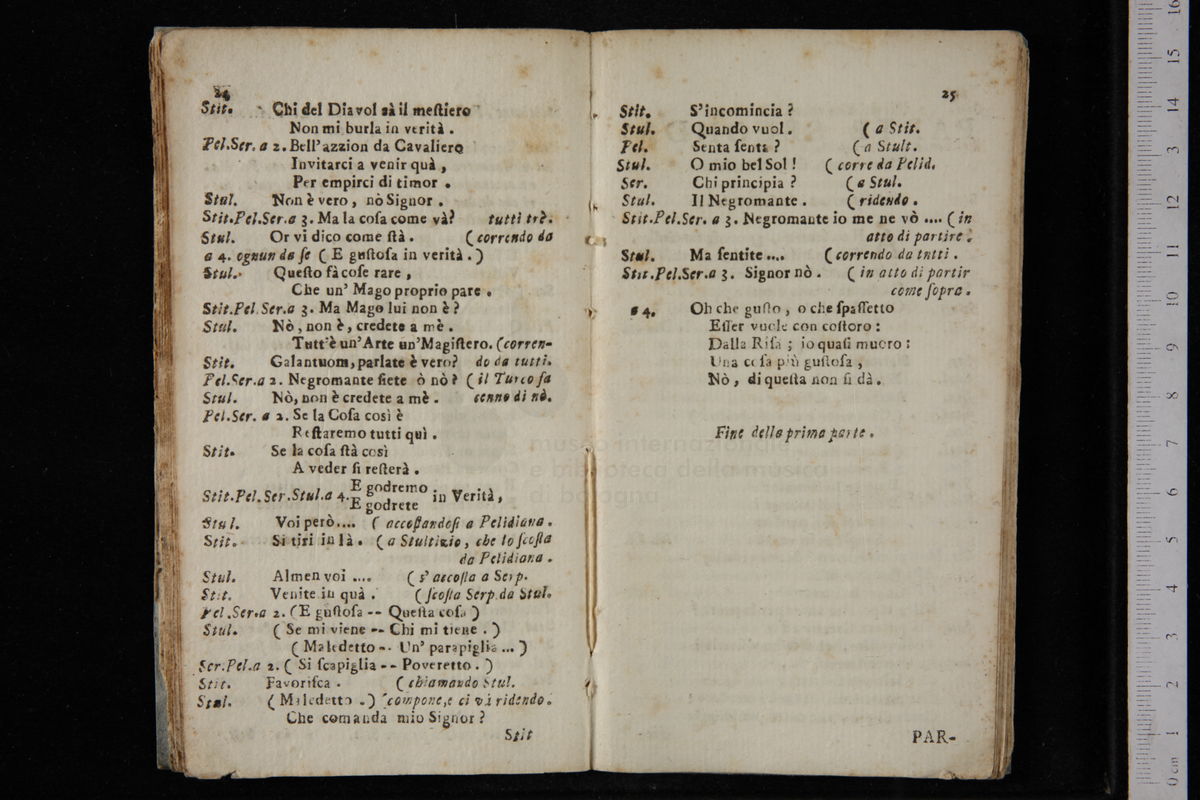 24
Stit. Chi del Diavol sà il meſtiero
Non mi burla in verità .
Pel.Ser. a 2. Bell'azzion da Cavaliero
Invitarci a venir quà ,
Per empirci di timor .
Stul. Non è vero , nò Signor .
Stit.Pel.Ser.a 3. Ma la coſa come và? tutti trè.
Stul. Or vi dico come ſtà . ( correndo da
a 4. ognun da ſe ( E guſtoſa in verità . )
Stul. Queſto fà coſe rare ,
Che un' Mago proprio pare .
Stit.Pel.Ser.a 3. Ma Mago lui non è ?
Stul. Nò , non è , credete a mè .
Tutt'è un'Arte un'Magiſtero. (corren-
Stit. Galantuom, parlate è vero? do da tutti.
Pel.Ser.a 2. Negromante ſiete ò nò ? ( il Turco fa
Stul. Nò, non è credete a mè . cenno di nò.
Pel.Ser. a 2. Se la Coſa così è
Reſtaremo tutti quì .
Stit. Se la coſa ſtà così
A veder ſi reſterà .
Stit.Pel.Ser.Stul.a 4. E godremo in Verità ,
E godrete
Stul. Voi però.... ( accoſtandoſi a Pelidiana .
Stit. Si tiri in là . ( a Stultizio , che lo ſcoſta
da Pelidiana .
Stul. Almen voi .... ( s' accoſta a Serp.
Stit. Venite in quà . ( ſcoſta Serp.da Stul.
Pel.Ser.a 2. ( E guſtoſa -- Queſta coſa )
Stul. ( Se mi viene -- Chi mi tiene . )
( Maledetto -- Un' parapiglia ... )
Ser.Pel.a 2. ( Si ſcapiglia -- Poveretto . )
Stit. Favoriſca . ( chiamando Stul.
Stul. ( Maledetto . ) compone,e ci và ridendo .
Che comanda mio Signor ?
Stit
25
Stit. S'incomincia ?
Stul. Quando vuol . ( a Stit.
Pel. Senta ſenta ? ( a Stult.
Stul. O mio bel Sol ! ( corre da Pelid.
Ser. Chi principia ? ( a Stul.
Stul. Il Negromante . ( ridendo .
Stit.Pel.Ser. a 3. Negromante io me ne vò .... ( in
atto di partire .
Stul. Ma ſentite .... ( correndo da tutti .
Stit.Pel.Ser.a 3. Signor nò . ( in atto di partir
come ſopra .
a 4. Oh che guſto , o che ſpaſſetto
Eſſer vuole con coſtoro :
Dalla Riſa ; io quaſi muoro :
Una coſa più guſtoſa ,
Nò , di queſta non ſi dà .
Fine della prima parte .
PAR-
museo internazionale
e biblioteca della musica
di bologna
0 cm 1 2 3 4 5 6 7 8 9 10 11 12 13 14 15 16